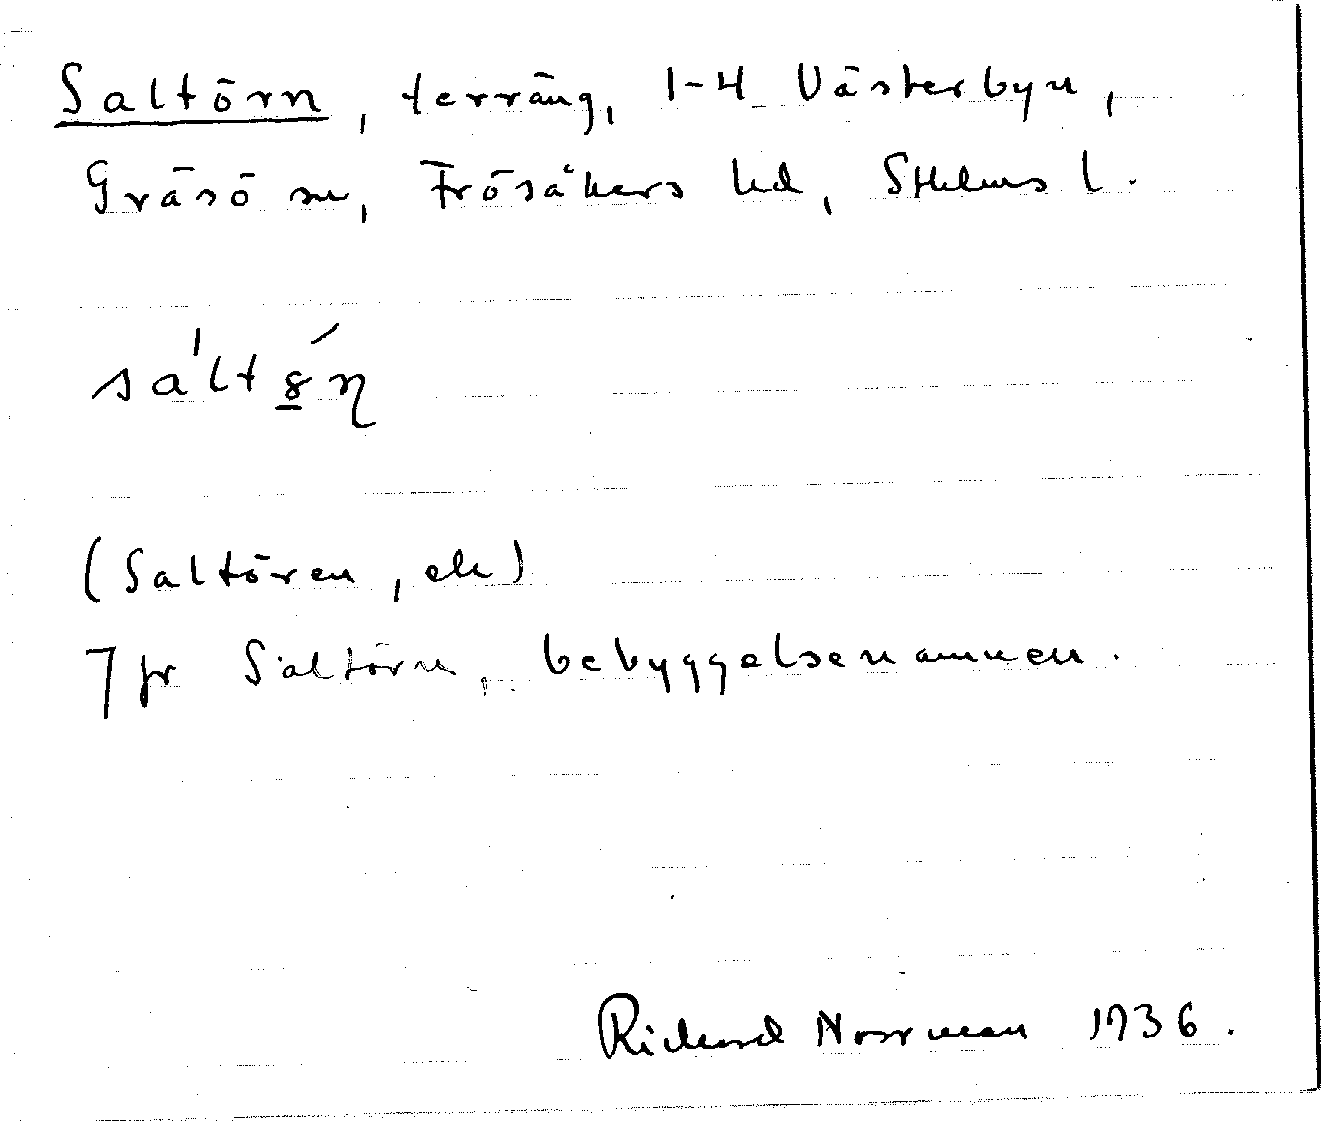 Saltörn, terräng, 1-4 Västerbyn,
Gräsö sn, Frösåkers hd, Sthlms l.
(Saltören, ek)
Jfr Saltörn, bebyggelsenamnen.
Richard Norrman 1936.